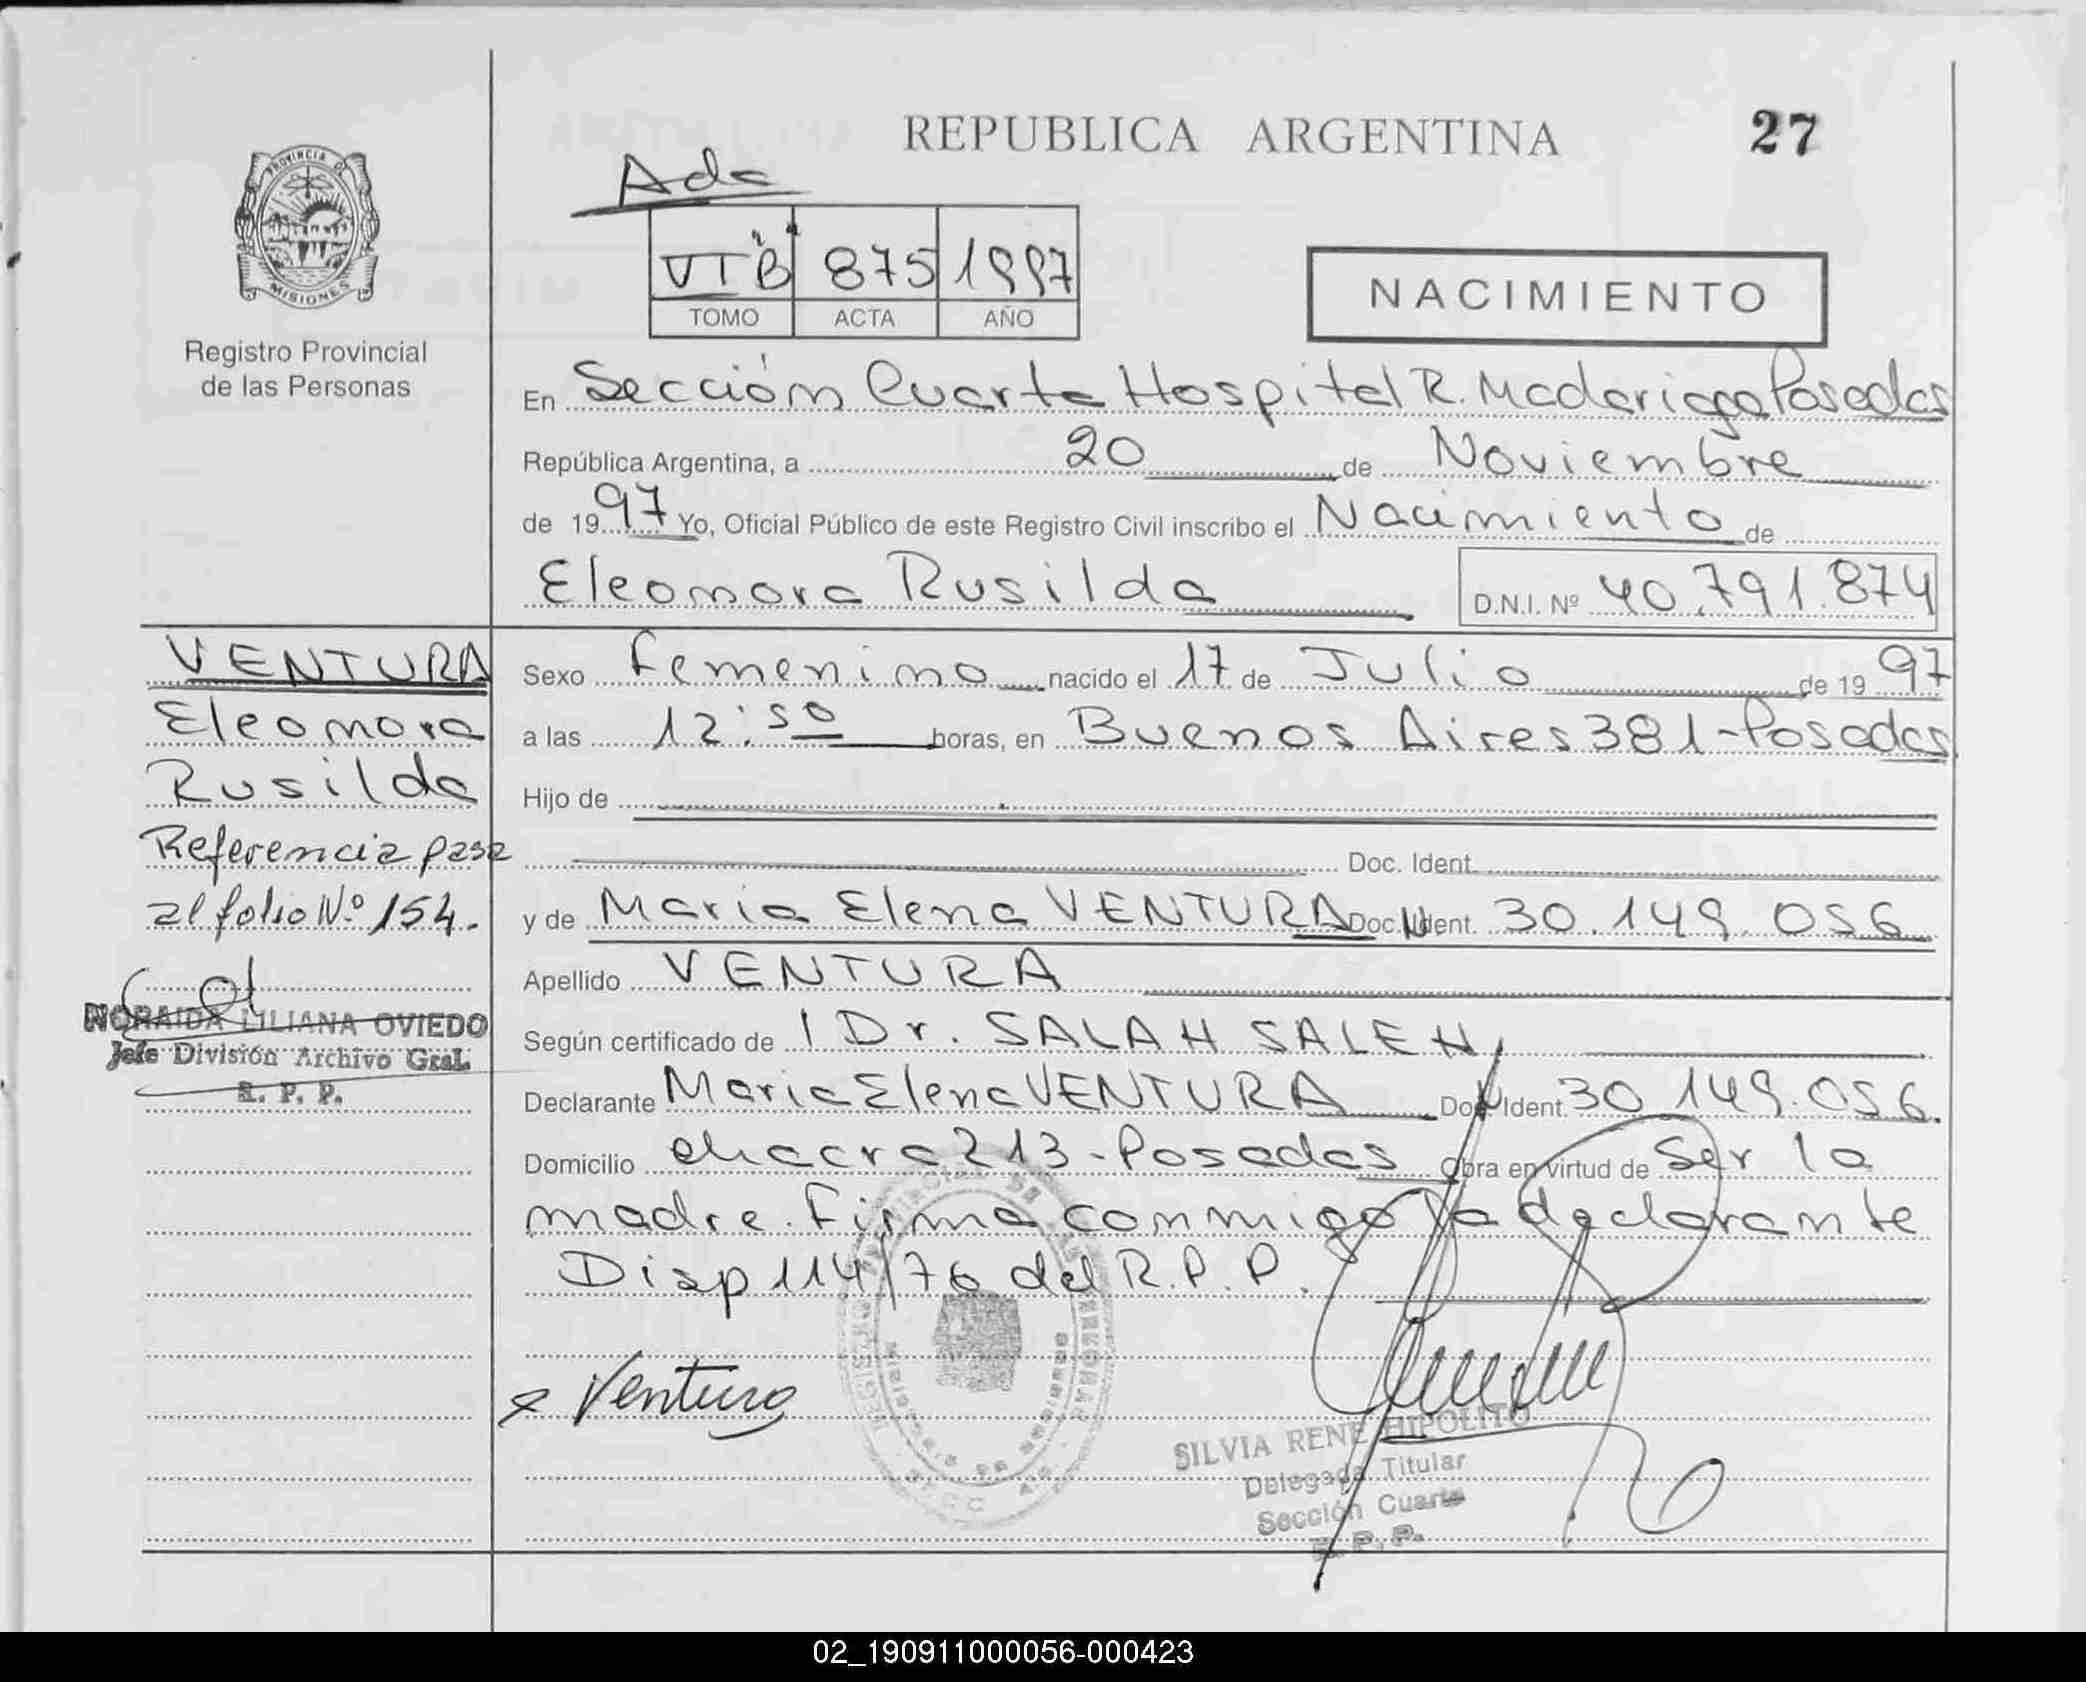 REPUBLICA ARGENTINA
27
PROVINCIA DE
MISIONES
Registro Provincial
de las Personas
Ada
VI "B" 875 1997
TOMO ACTA AÑO
NACIMIENTO
En Sección Cuarta Hospital R. Madariaga Posadas
República Argentina, a 20 de Noviembre
de 1997 Yo, Oficial Público de este Registro Civil inscribo el Nacimiento de
Eleonora Rusilda D.N.I. Nº 40.791.874
VENTURA
Eleonora
Rusilda
Referencia pasa
al folio Nº 154.
NORAIDA LILIANA OVIEDO
Jefe División Archivo Gral.
R. P. P.
Sexo Femenino nacido el 17 de Julio de 1997
a las 12:50 horas, en Buenos Aires 381-Posadas
Hijo de
Doc. Ident.
y de Maria Elena VENTURA Doc. Ident. 30.149.056
Apellido VENTURA
Según certificado de Dr. SALAH SALEH
Declarante Maria Elena VENTURA Doc. Ident. 30.149.056.
Domicilio chacra 213-Posadas Obra en virtud de Ser la
madre. Firma conmigo la declarante
Disp 114/76 del R.P.P.
Ventura
SILVIA RENE HIPOLITO
Delegada Titular
Sección Cuarta
R. P. P.
02_190911000056-000423